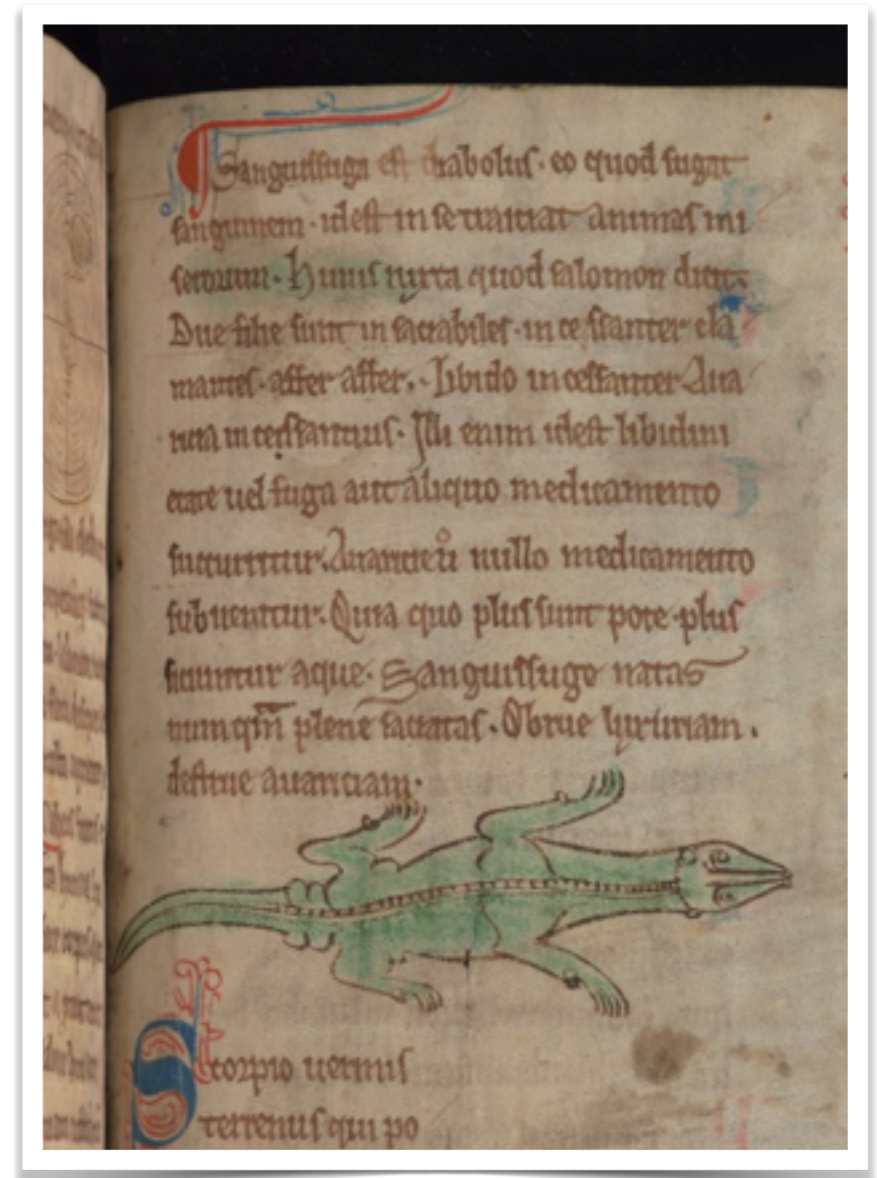 Sanguissuga est diabolus · eo quod sugat
sanguinem · idest in se traiciat animas mi
serorum · Huius iuxta quod salomon dicit ·
Due filie sunt in saciabiles · in ce ssanter cla
mantes · affer affer · Libido incessanter Aua
ricia incessancius · Illi enim idest libidini
etate uel fuga aut aliquo medicamento
succurritur · Auaricie uº nullo medicamento
subuenitur · Quia quo plus sunt pote · plus
siciuntur aque · Sanguissuge natas
numqm̄ plene saciatas · Obrue luxuriam ·
destrue auariciam ·
Scorpio uermis
terrenus qui po